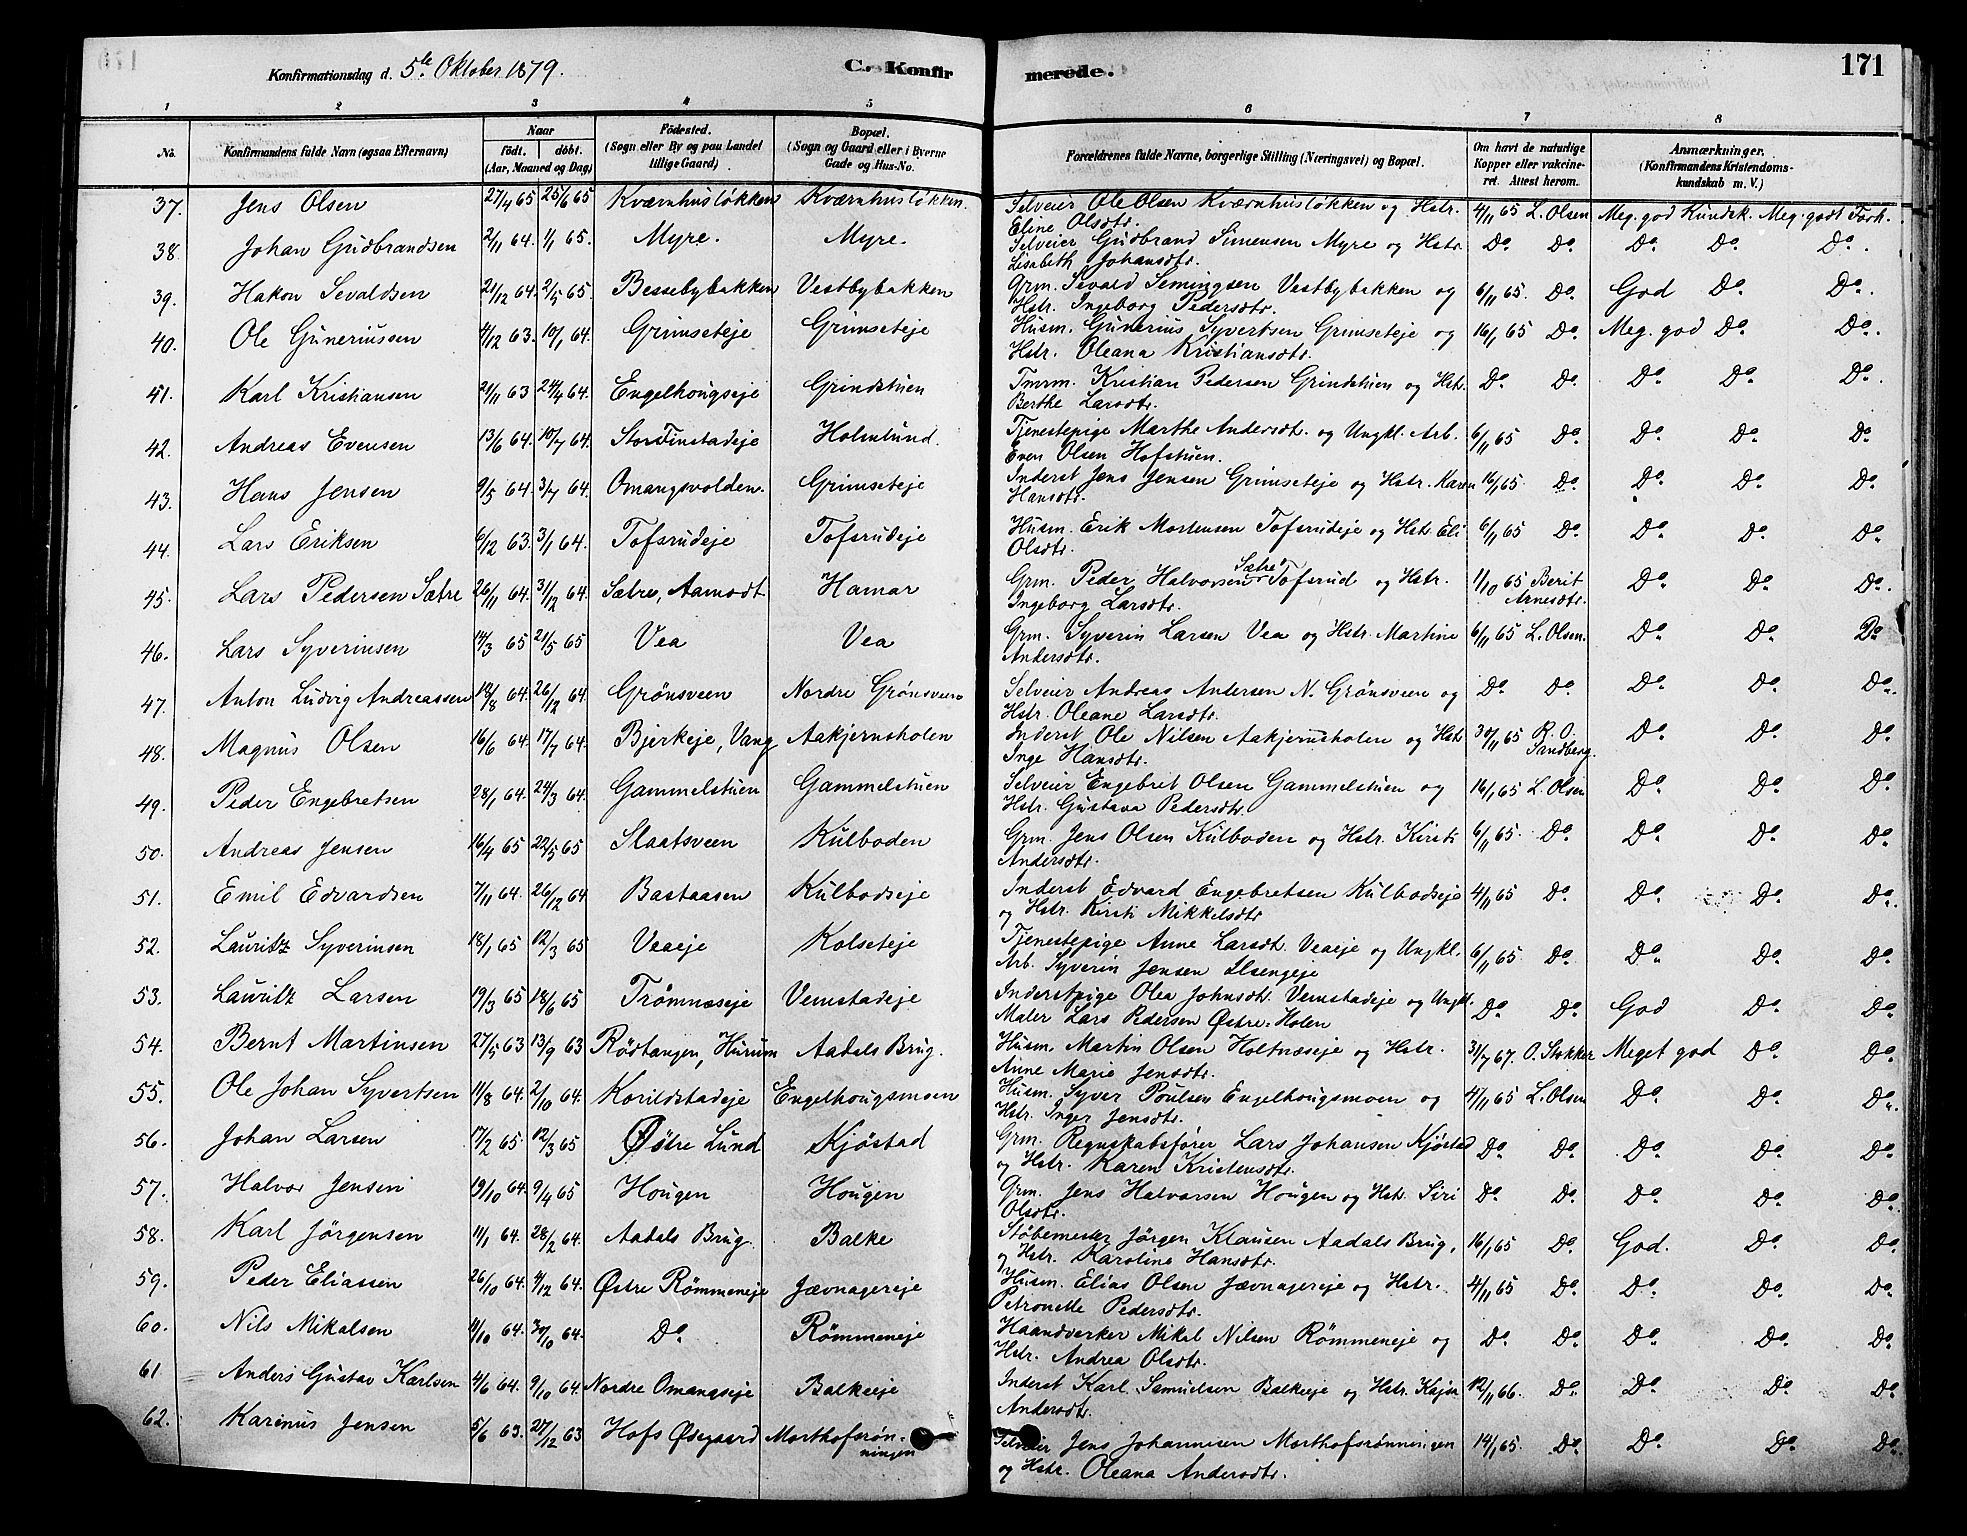 Konfirmationsdag d. 5te Oktober 1879.
C. Konfirmerede.
171
1 2 3 4 5 6 7 8
No. Konfirmandens fulde Navn (ogsaa Efternavn) Naar født. døbt. (Aar, Maaned og Dag) Födested. (Sogn eller By og paa Landet tillige Gaard) Bopæl. (Sogn og Gaard eller i Byerne Gade og Hus-No. Forældrenes fulde Navne, borgerlige Stilling (Næringsvei) og Bopæl. Om havt de naturlige Kopper eller vakcineret. Attest herom. Anmærkninger. (Konfirmandens Kristendomskundskab m. V.)
37. Jens Olsen 27/4 65 25/6 65 Kværnhusløkken Kværnhusløkken. Selveier Ole Olsen Kværnhusløkken og Hstr. Eline Olsdtr. 4/11 65 L. Olsen Meg. god Kundsk. Meg. godt Forh.
38. Johan Gudbrandsen 2/11 64. 1/1 65. Myre. Myre. Selveier Gudbrand Simensen Myre og Hstr. Lisabeth Johansdtr. Do Do. Do. Do. Do.
39. Hakon Sevaldsen 21/12 64. 2/5 65. Bessebybakken Vestbybakken Grm. Sevald Semingsen Vestbybakken og Hstr. Ingeborg Pedersdtr. 6/11 65. Do. God Do. Do.
40. Ole Guneriussen 4/12 63. 10/1 64. Grimseteje Grimseteje Husm. Gunerius Syvertsen Grimseteje og Hstr. Oleana Kristiansdtr. 16/1 65 Do. Meg. god Do. Do.
41. Karl Kristiansen 21/11 63 24/4 64. Engelhougseje Grindstuen Tmrm. Kristian Pedersen Grindstuen og Hstr. Berthe Larsdtr. Do. Do. Do. Do. Do.
42. Andreas Evensen 13/6 64. 10/7 64. StorFinstadeje Holmlund. Tjenestepige Marthe Andersdt. og Ungkl. Arb. Even Olsen Hofstuen. 6/11 65 Do. Do. Do. Do
43. Hans Jensen 9/5 64. 3/7 64. Omangsvolden. Grimseteje Inderst Jens Jensen Grimseteje og Hstr. Karen Hansdtr. 16/1 65 Do. Do. Do. Do
44. Lars Eriksen 6/12 63. 3/1 64. Tofsrudeje Tofsrudeje Husm. Erik Mortensen Tofsrudeje og Hstr. Eli Olsdtr. 6/11 65 Do. Do. Do. Do.
45. Lars Pedersen Sætre 26/11 64. 31/12 64. Sætre, Aamodt Hamar Grm. Peder Halvorsen Sætre Tofsrud og Hstr. Ingeborg Larsdtr. 1/10 65 Berit Arnesdtr. Do. Do. Do.
46. Lars Syverinsen 14/3 65 21/5 65 Vea Vea Grm. Syverin Larsen Vea og Hstr. Martine Andersdtr. 6/11 65 L. Olsen. Do. Do. Do
47. Anton Ludvig Andreassen 18/8 64. 26/12 64. Grønsveen Nordre Grønsveen Selveier Andreas Andersen N. Grønsveen og Hstr. Oleane Larsdtr. Do. Do. Do. Do. Do.
48. Magnus Olsen 16/6 64. 17/7 64. Bjerkeje, Vang Aakjernsholen Inderst Ole Nilsen Aakjernsholen og Hstr Inge Hansdtr. 30/11 65 R. O. Sandberg. Do. Do. Do.
49. Peder Engebretsen 28/1 64. 24/3 64. Gammelstuen Gammelstuen Selveier Engebret Olsen Gammelstuen og Hstr. Gustava Pedersdtr. 16/1 65 L. Olsen Do. Do. Do
50. Andreas Jensen 16/4 65 22/5 65 Slaatsveen Kulboden Grm. Jens Olsen Kulboden og Hstr. Kirsti Andersdtr. 6/11 65. Do. Do. Do. Do.
51. Emil Edvardsen 7/11 64. 26/12 64 Bastaasen Kulbodseje Inderst Edvard Engebretsen Kulbodseje og Hstr. Kirsti Mikkelsdtr 4/11 65 Do. Do. Do. Do.
52. Lauritz Syverinsen 18/1 65 12/3 65 Veaeje Kolseteje Tjenestepige Anne Larsdt. Veaeje og Ungkl. Arb. Syverin Jensen Ilsengeje 6/11 65 Do. Do. Do. Do.
53. Lauritz Larsen 19/3 65 18/6 65 Trømnæseje Vemstadeje Inderstpige Olea Johnsdt. Vemstadeje og Ungkl. Maler Lars Pedersen Østre Holen Do. Do. God Do. Do.
54. Bernt Martinsen 27/5 63 13/9 63 Rödtangen, Hurum Aadals Brug. Husm. Martin Olsen Holtnæseje og Hstr. Anne Marie Jensdtr. 31/7 67. O. Stokker Meget god Do. Do
55. Ole Johan Syvertsen 11/8 64. 2/10 64. Korildstadeje Engelhougsmoen Husm. Syver Poulsen Engelhougsmoen og Hstr. Inger Jensdtr. 4/11 65 L. Olsen Do. Do. Do.
56. Johan Larsen 17/2 65. 12/3 65 Østre Lund Kjøstad Grm. Regnskabsfører Lars Johansen Kjøstad og Hstr. Karen Kristensdtr. Do. Do. Do. Do. Do.
57. Halvor Jensen 19/10 64. 9/4 65 Hougen Hougen Grm. Jens Halvorsen Hougen og Hstr. Siri Olsdtr. Do. Do. Do. Do. Do.
58. Karl Jörgensen 11/1 64. 28/2 64. Aadals Brug. Balke Støbemester Jörgen Klausen Aadals Brug. og Hstr. Karoline Hansdtr. 16/1 65 Do. God. Do. Do.
59. Peder Eliassen 26/10 64. 4/12 64. Østre Rømmeneje Jævnagereje Husm. Elias Olsen Jævnagereje og Hstr. Petronelle Pedersdtr. 4/11 65 Do. Do. Do. Do.
60. Nils Mikalsen 11/10 64. 30/10 64. Do. Rømmeneje Haandverker Mikal Nilsen Rømmeneje og Hstr. Andrea Olsdtr. Do. Do. Do. Do. Do.
61 Anders Gustav Karlsen 4/6 64. 9/10 64. Nordre Omangseje Balkeeje Inderst Karl Samuelsen Balkeeje og Hstr. Kajsa Andersdtr. 12/11 66. Do. Do. Do. Do.
62. Karinus Jensen 5/6 63. 27/12 63 Hofs Ødegaard Morthofsrönningen Selveier Jens Johannesen Morthofsrønningen og Hstr. Oleana Andersdtr. 14/1 65. Do. Do. Do. Do.